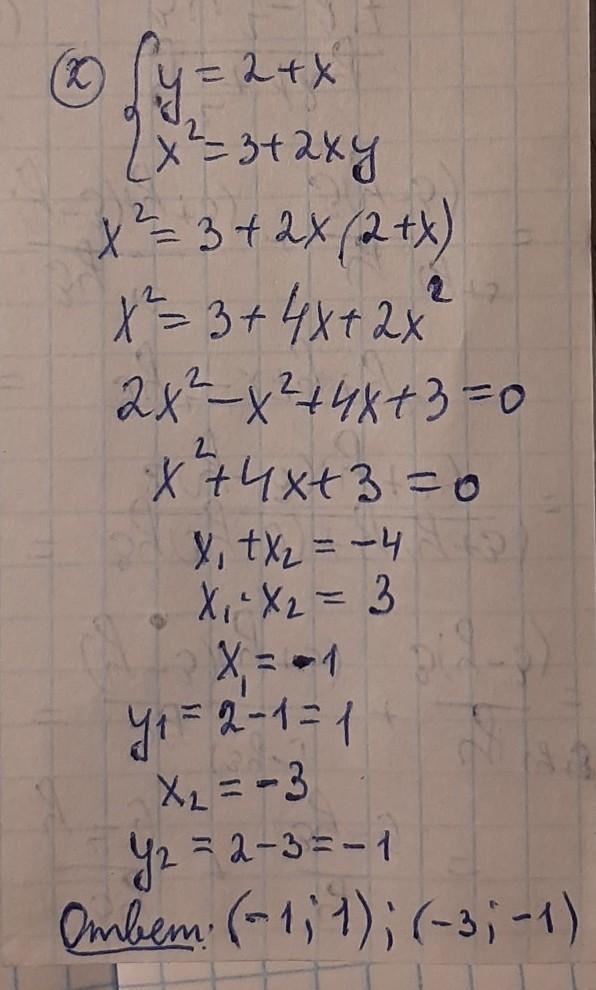 ② { y = 2 + x
x² = 3 + 2xy
x² = 3 + 2x(2+x)
x² = 3 + 4x + 2x²
2x² - x² + 4x + 3 = 0
x² + 4x + 3 = 0
x₁ + x₂ = -4
x₁ · x₂ = 3
x₁ = -1
y1 = 2 - 1 = 1
x₂ = -3
y₂ = 2 - 3 = -1
Ответ: (-1; 1); (-3; -1)